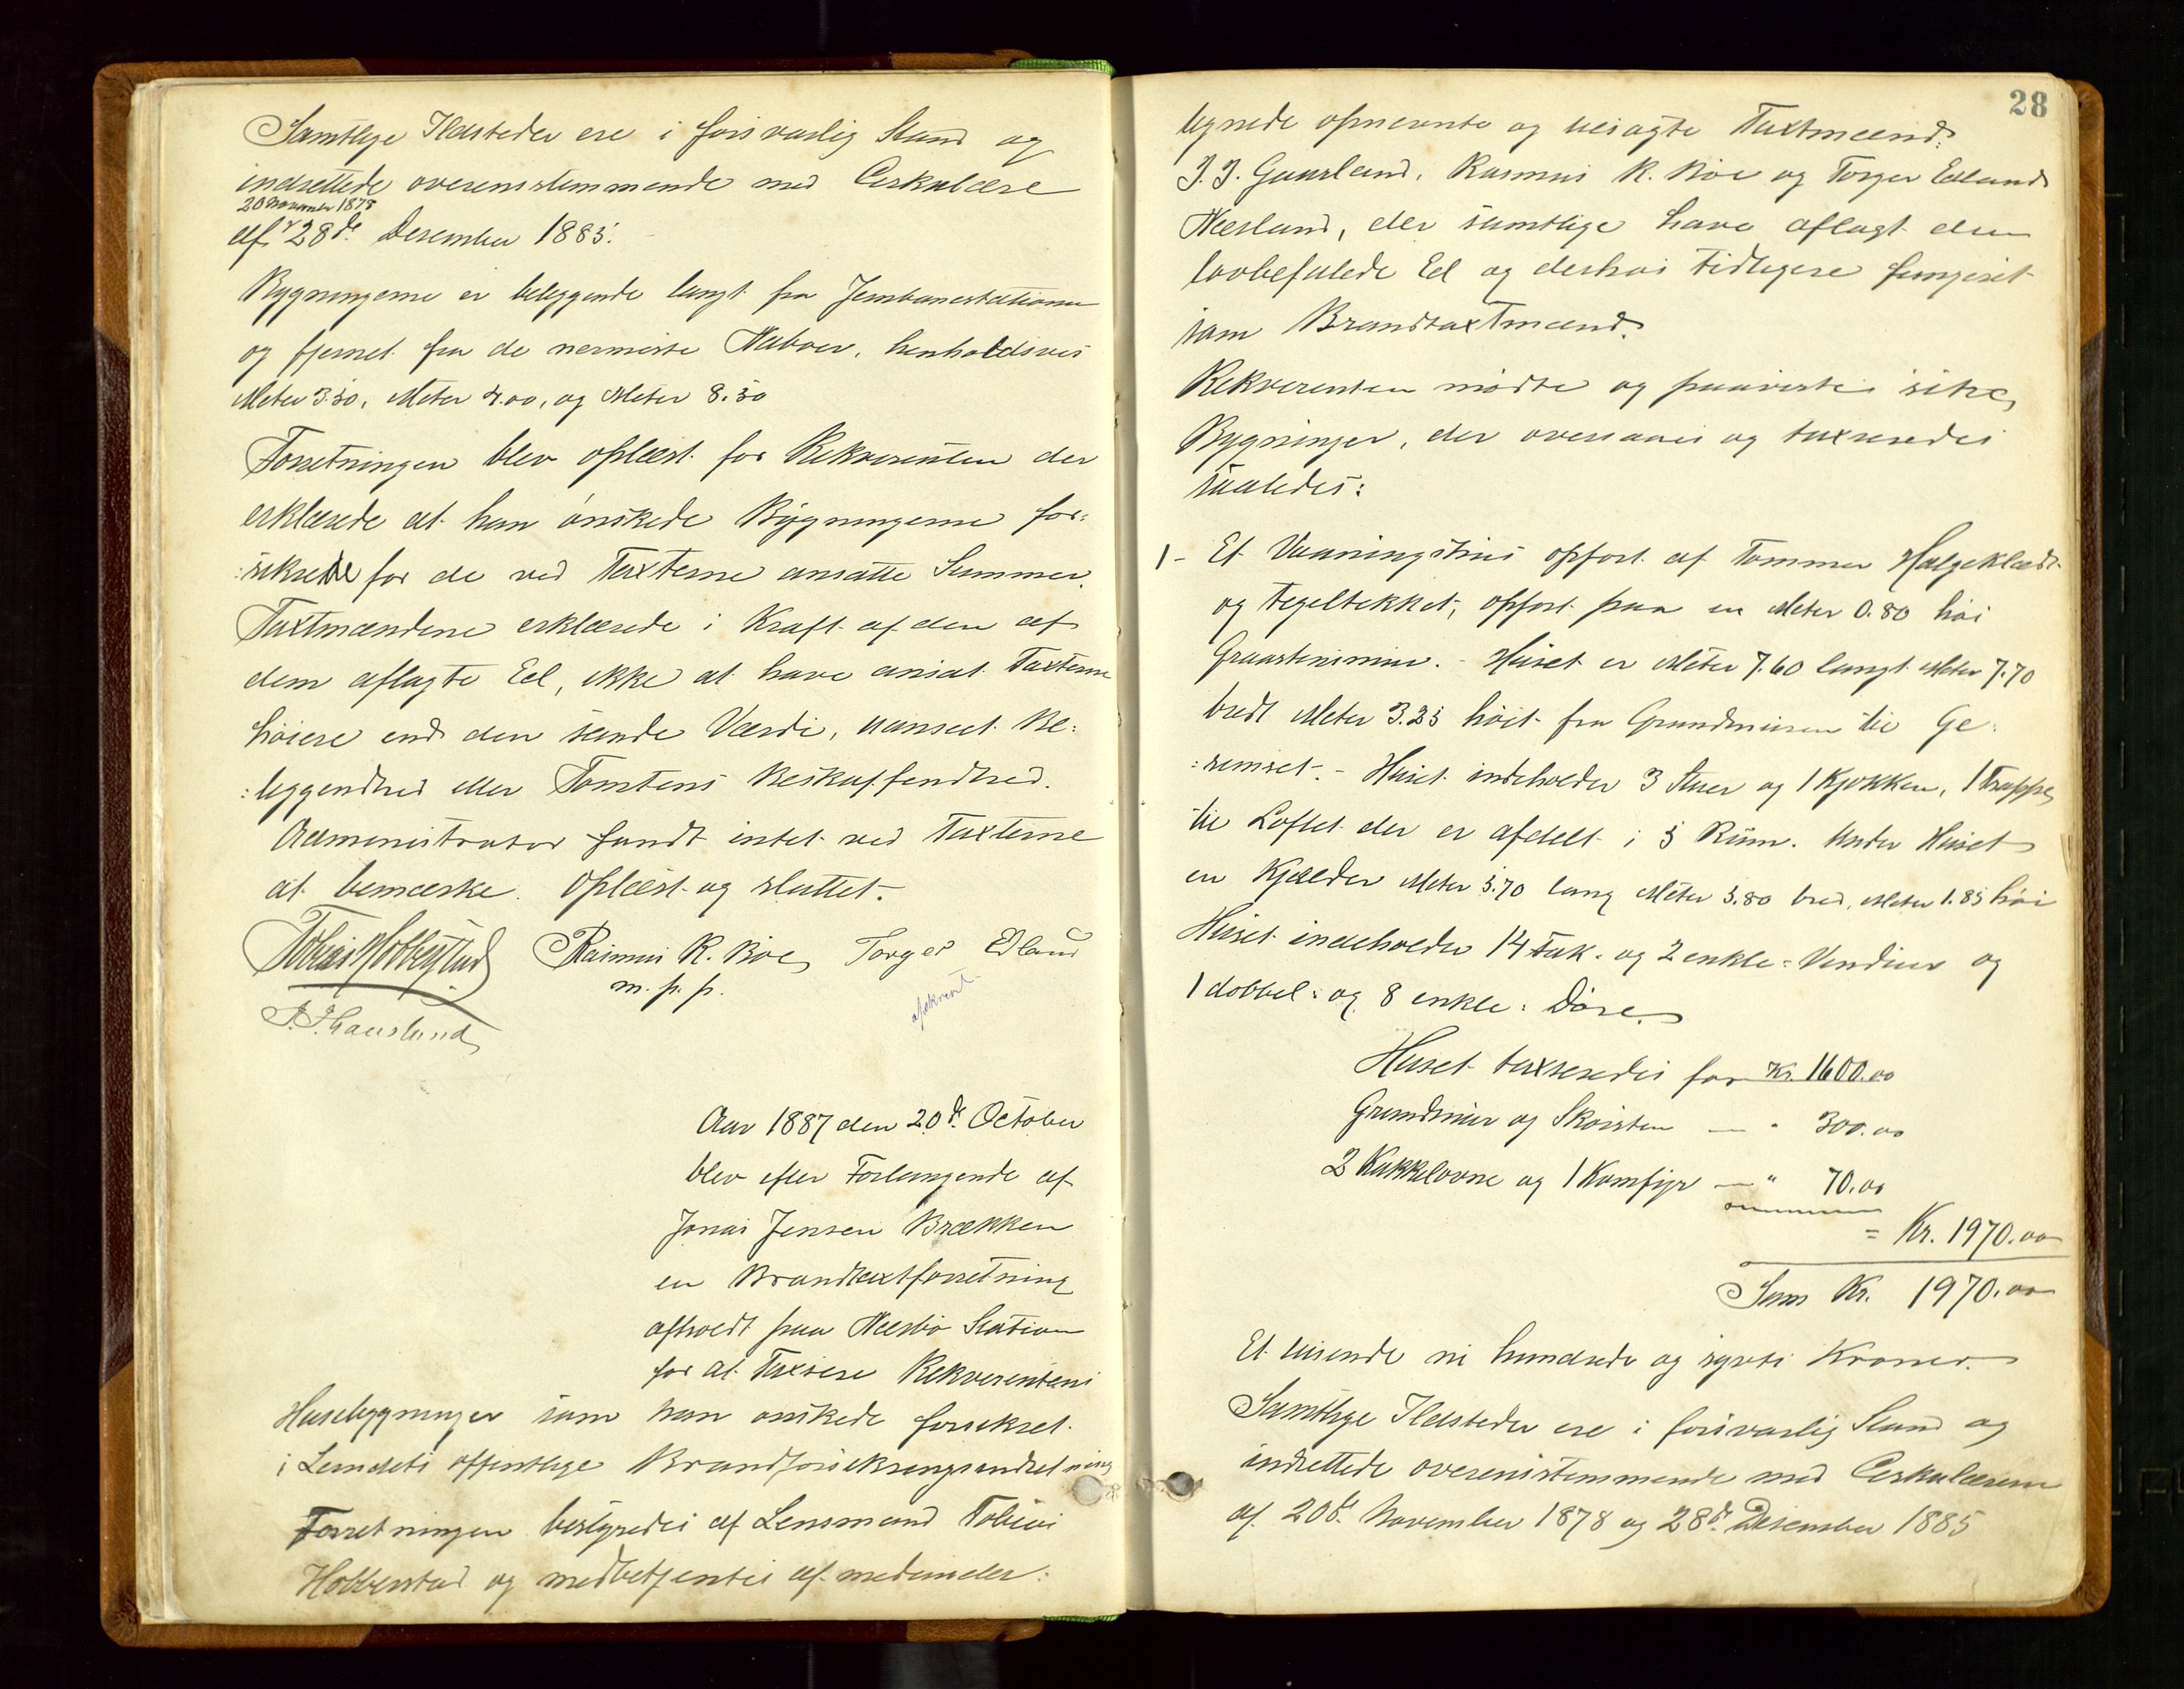 Samtlige Ildsteder ere i forsvarlig Stand og
indrettede overensstemmende med Cirkulære
20 November 1878
af 28de Desember 1885.
Bygningerne er beliggende langt fra Jernbanestationen
og fjernet fra de nermeste Naboer, henholdsvis
Meter 3.50, Meter 4.00, og Meter 8.50
Forretningen blev oplæst for Rekvirenten der
erklærede at han ønskede Bygningerne for:
:sikrede for de ved Taxterne ansatte Summer.
Taxtmændene erklærede i Kraft af den af
dem aflagte Ed, ikke at have ansat Taxterne
høiere end den sande Værdi, uanseet Be:
:liggendhed eller Tomtens Beskaffendhed.
Administrator fandt intet ved Taxterne
at bemærke. Oplæst og sluttet.
Tobias Hobberstad Rasmus R. Boe Torger Edland
m. p. p.
afskrevet
J. J. Gausland
Aar 1887 den 20de October
blev efter Forlangende af
Jonas Jensen Brækken
en Brandtaxtforretning
afholdt paa Nærbø Station
for at Taxsere Rekvirentens
Husebygninger som han ønskede forsikret
i Landets offentlige Brandforsikringsindretning
Forretningen bestyredes af Lensmand Tobias
Hobberstad og medbetjentes af medunder:
28
tegnede opnevnte og Taxtmænd:
J. J. Gausland, Rasmus R. Boe og Torger Edland
Nærland, der samtlige have aflagt den
lovbefalede Ed og derhos tidligere fungeret
som Brandtaxtmænd.
Rekvirenten mødte og paaviste sine
Bygninger, der oversaaes og taxseredes
saaledes:
1- Et Vaaningshus opført af Tømmer Halgeklædt
og tegeltekket, opført paa en Meter 0.80 høi
Graastensmur. - Huset er Meter 7.60 langt Meter 7.70
bredt Meter 3.25 høit fra Grundmuren til Ge:
:semset. - Huset indeholder 3 Stuer og 1 Kjøkken, 1 Trappe
til Loftet der er afdelt i 5 Rum. Under Huset
en Kjælder Meter 5.70 lang Meter 3.80 bred, Meter 1.85 høi
Huset indeholder 14 Fak. og 2 enkle: Vinduer og
1 dobbel: og 8 enkle: Døre.
Huset taxseredes for Kr. 1600.00
Grundmur og Skorsten — " 300.00
2 Kakkelovne og 1 Komfyr — " 70.00
= Kr. 1970.00
Sum Kr. 1970.00
Et tusende ni hundrede og sytti Kroner.
Samtlige Ildsteder ere i forsvarlig Stand og
indrettede overensstemmende med Cirkulærene
af 20de November 1878 og 28de Desember 1885